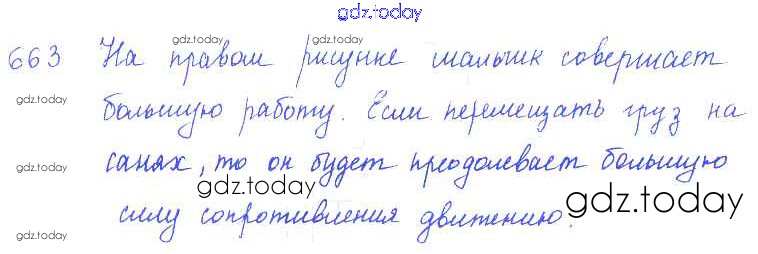 gdz.today
663 На правом рисунке мальчик совершает
gdz.today gdz.today gdz.today
gdz.today
большую работу. Если перемещать груз на
gdz.today
санях, то он будет преодолевает большую
gdz.today gdz.today
силу сопротивления движению.
gdz.today